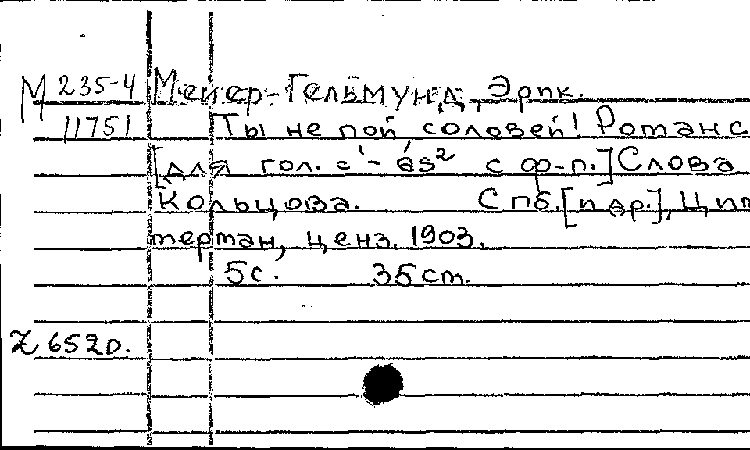 М 235-4 Мейер-Гельмунд, Эрик.
11751 Ты не пой соловей! Романс
[для гол. c'- as² с ф-п.] Слова
Кольцова. Спб.[и др.], Цим
мерман, ценз. 1903.
5с. 35см.
Z 652D.